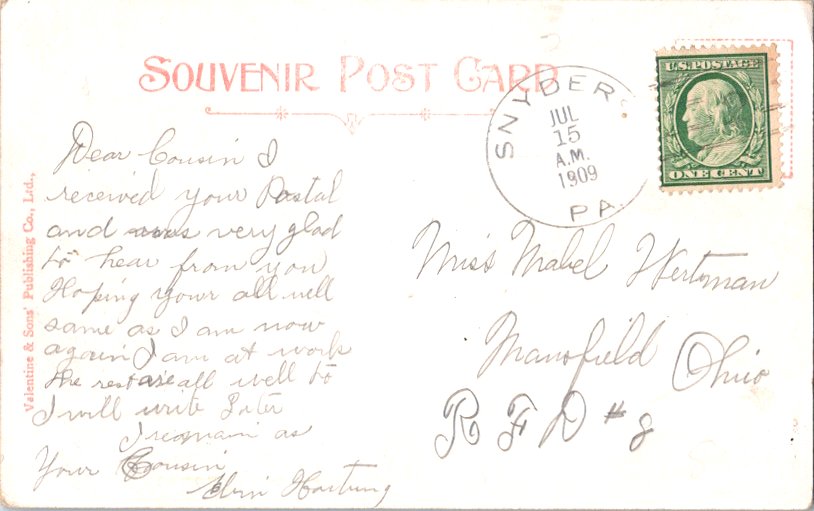 SOUVENIR POST CARD
U.S. POSTAGE
ONE CENT
SNYDERS
JUL
15
A.M.
1909
PA.
Valentine & Sons' Publishing Co., Ltd.,
Dear Cousin I
received your Postal
and was very glad
to hear from you
Hoping your all well
same as I am now
again I am at work
the rest are all well to
I will write Later
I remain as
Your Cousin
Hartung
Miss Mabel Wertman
Mansfield Ohio
R F D # 8